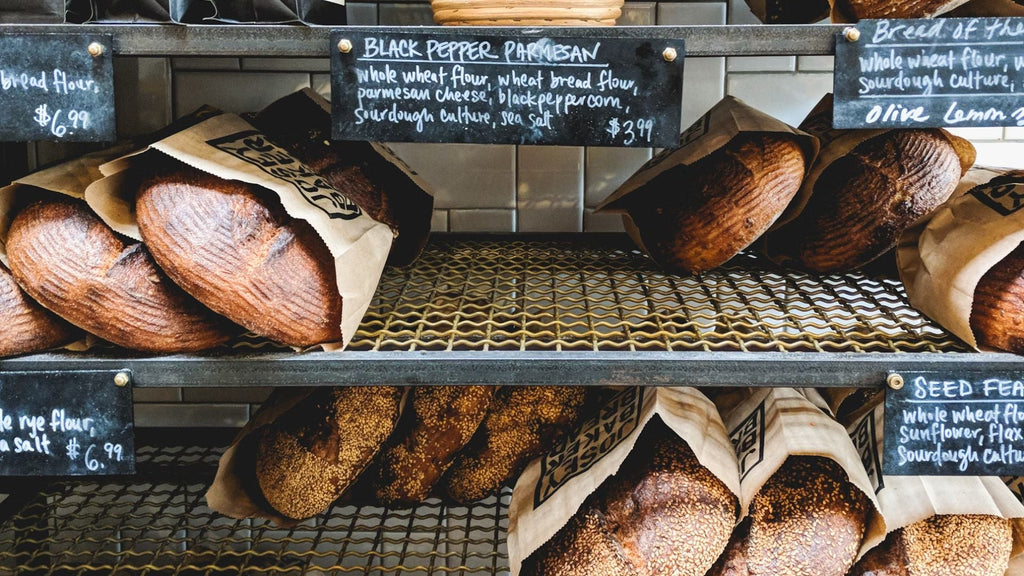 bread flour,
$6.99
BLACK PEPPER PARMESAN
whole wheat flour, wheat bread flour,
parmesan cheese, black peppercorn,
sourdough culture, sea salt
$3.99
Bread of the
whole wheat flour, w
sourdough culture,
Olive Lemon
rye flour,
salt
$6.99
SEED FEA
whole wheat flo
sunflower, flax
sourdough cultu
JOSEY
BAKER
BREAD